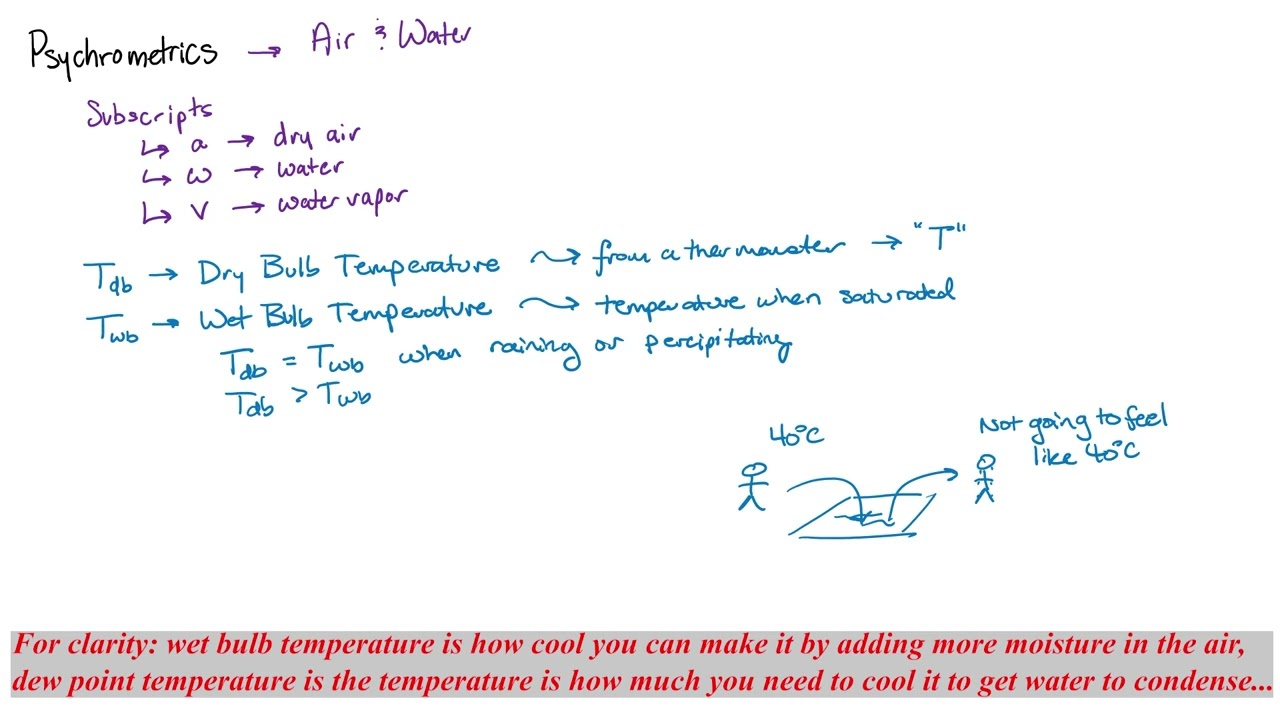 Psychrometrics → Air & Water
Subscripts
↳ a → dry air
↳ w → water
↳ v → water vapor
Tdb → Dry Bulb Temperature ⤳ from a thermometer → "T"
Twb → Wet Bulb Temperature ⤳ temperature when saturated
Tdb = Twb when raining or percipitating
Tdb > Twb
40°C
Not going to feel
like 40°C
For clarity: wet bulb temperature is how cool you can make it by adding more moisture in the air,
dew point temperature is the temperature is how much you need to cool it to get water to condense...